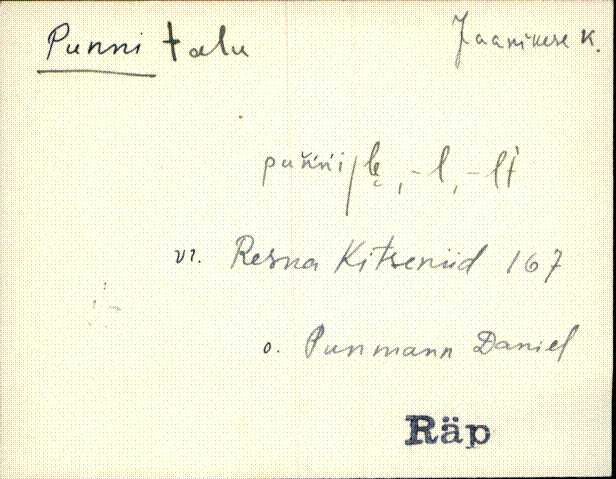 Punni talu
Jaanikese k.
puńńi/lę, -l, -lt
vr. Resna Kitseniid 167
o. Punmann Daniel
Räp